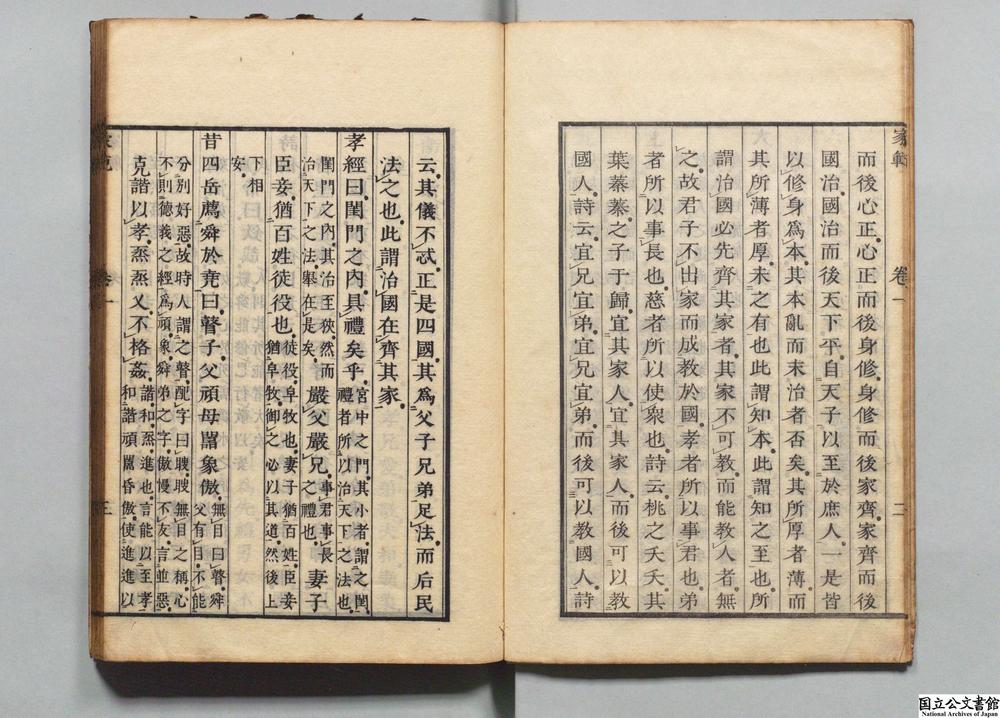 家範 卷一 二
而後心正心正而後身修身修而後家齊家齊而後
國治國治而後天下平自天子以至於庶人一是皆
以修身爲本其本亂而末治者否矣其所厚者薄而
其所薄者厚未之有也此謂知本此謂知之至也所
謂治國必先齊其家者其家不可教而能教人者無
之故君子不出家而成教於國孝者所以事君也弟
者所以事長也慈者所以使衆也詩云桃之夭夭其
葉蓁蓁之子于歸宜其家人宜其家人而後可以教
國人詩云宜兄宜弟宜兄宜弟而後可以教國人詩
云其儀不忒正是四國其爲父子兄弟足法而后民
法之也此謂治國在齊其家
孝經曰閨門之内具禮矣乎宮中之門其小者謂之閨禮者所以治天下之法也
閨門之内其治至狹然而治天下之法舉在是矣嚴父嚴兄事君事長之禮也妻子
臣妾猶百姓徒役也徒役皁牧也妻子猶百姓臣妾猶皁牧御之必以其道然後上
下相安
昔四岳薦舜於堯曰瞽子父頑母嚚象傲無目曰瞽舜父有目不能
分別好惡故時人謂之瞽配字曰瞍瞍無目之稱心不則德義之經爲頑象舜弟之字傲慢不友言並惡
克諧以孝烝烝乂不格姦諧和烝進也言能以至孝和諧頑嚚昏傲使進進以
家範 卷一 三
国立公文書館
National Archives of Japan